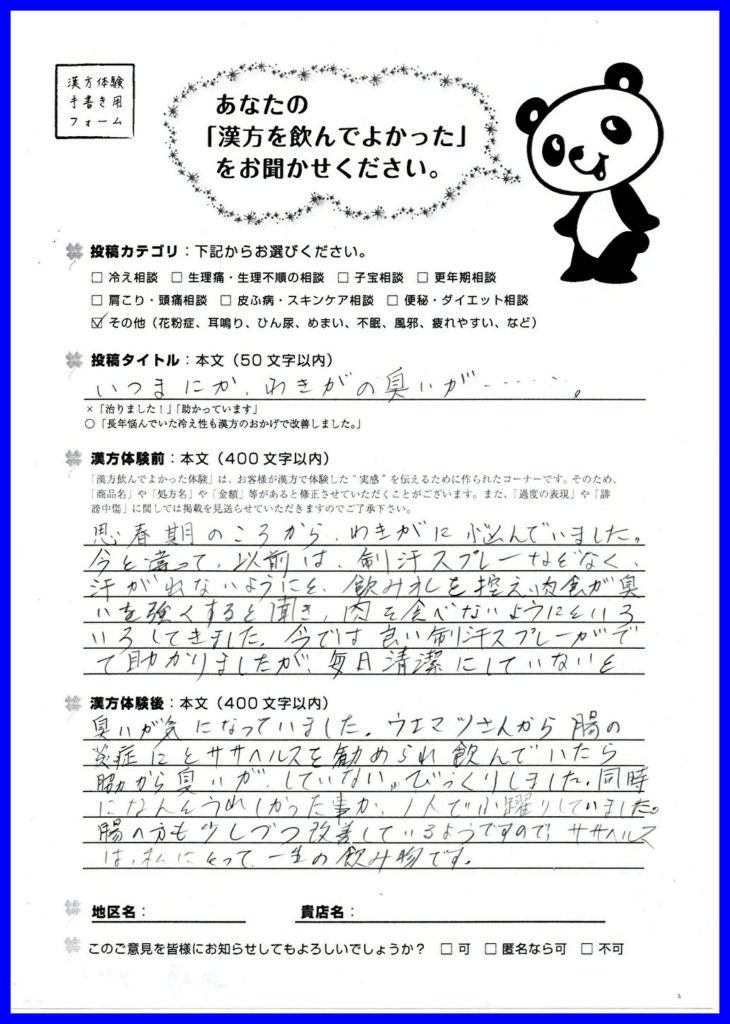 漢方体験
手書き用
フォーム
あなたの
「漢方を飲んでよかった」
をお聞かせください。
投稿カテゴリ：下記からお選びください。
□ 冷え相談　□ 生理痛・生理不順の相談　□ 子宝相談　□ 更年期相談
□ 肩こり・頭痛相談　□ 皮ふ病・スキンケア相談　□ 便秘・ダイエット相談
☑ その他（花粉症、耳鳴り、ひん尿、めまい、不眠、風邪、疲れやすい、など）
投稿タイトル：本文（50文字以内）
いつまにか、わきがの臭いが……。
×「治りました！」「助かっています」
○「長年悩んでいた冷え性も漢方のおかげで改善しました。」
漢方体験前：本文（400文字以内）
「漢方飲んでよかった体験」は、お客様が漢方で体験した“実感”を伝えるために作られたコーナーです。そのため、
「商品名」や「処方名」や「金額」等があると修正させていただくことがございます。また、「過度の表現」や「誹
謗中傷」に関しては掲載を見送らせていただきますのでご了承下さい。
思春期のころから、わきがに悩んでいました。
今と違って、以前は、制汗スプレーなどなく、
汗がでないようにと、飲み水を控え、肉食が臭
いを強くすると聞き、肉を食べないようにといろ
いろしてきました。今では良い制汗スプレーがで
て助かりましたが、毎日清潔にしていないと
漢方体験後：本文（400文字以内）
臭いが気になっていました。ウエマツさんから腸の
炎症にとササヘルスを勧められ飲んでいたら
脇から臭いが、していない。びっくりしました。同時
になんとうれしかった事か、1人で小躍りしていました。
腸の方も少しづつ改善しているようですので、ササヘルス
は、私にとって、一生の飲み物です。
地区名：　貴店名：
このご意見を皆様にお知らせしてもよろしいでしょうか？　□ 可　□ 匿名なら可　□ 不可